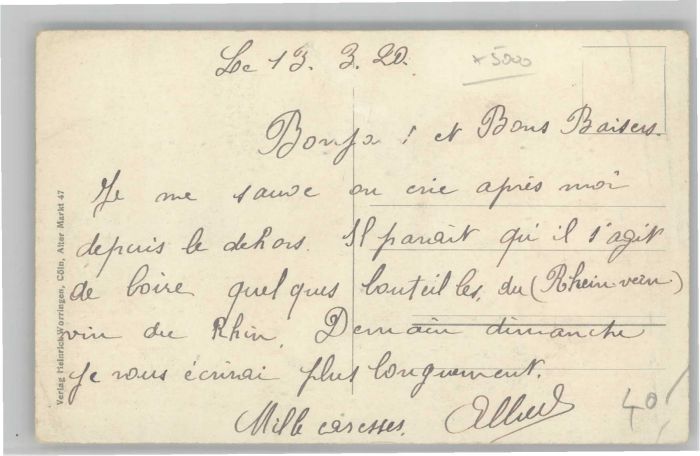 Le 13. 3. 20.
x 5000
Bonjx ! et Bons Baisers.
Je me sauve on crie après moi
depuis le dehors. Il parait qu'il s'agit
de boire quelques bouteilles, du (Rhein vein)
vin du Rhin. Demain dimanche
je vous écrirai plus longuement.
Mille caresses. Albert
40
Verlag Heinrich Worringen, Cöln, Alter Markt 47